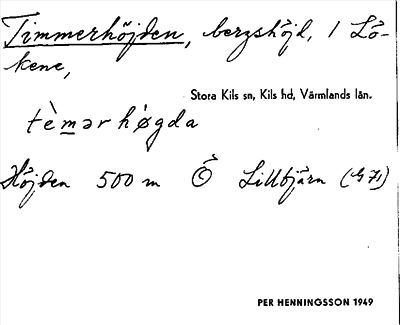 Timmerhöjden, bergshöjd, 1 Lö-
kene,
Stora Kils sn, Kils hd, Värmlands län.
tèmər høgda
Höjden 500 m Ö Lillbjärn (G 71)
PER HENNINGSSON 1949